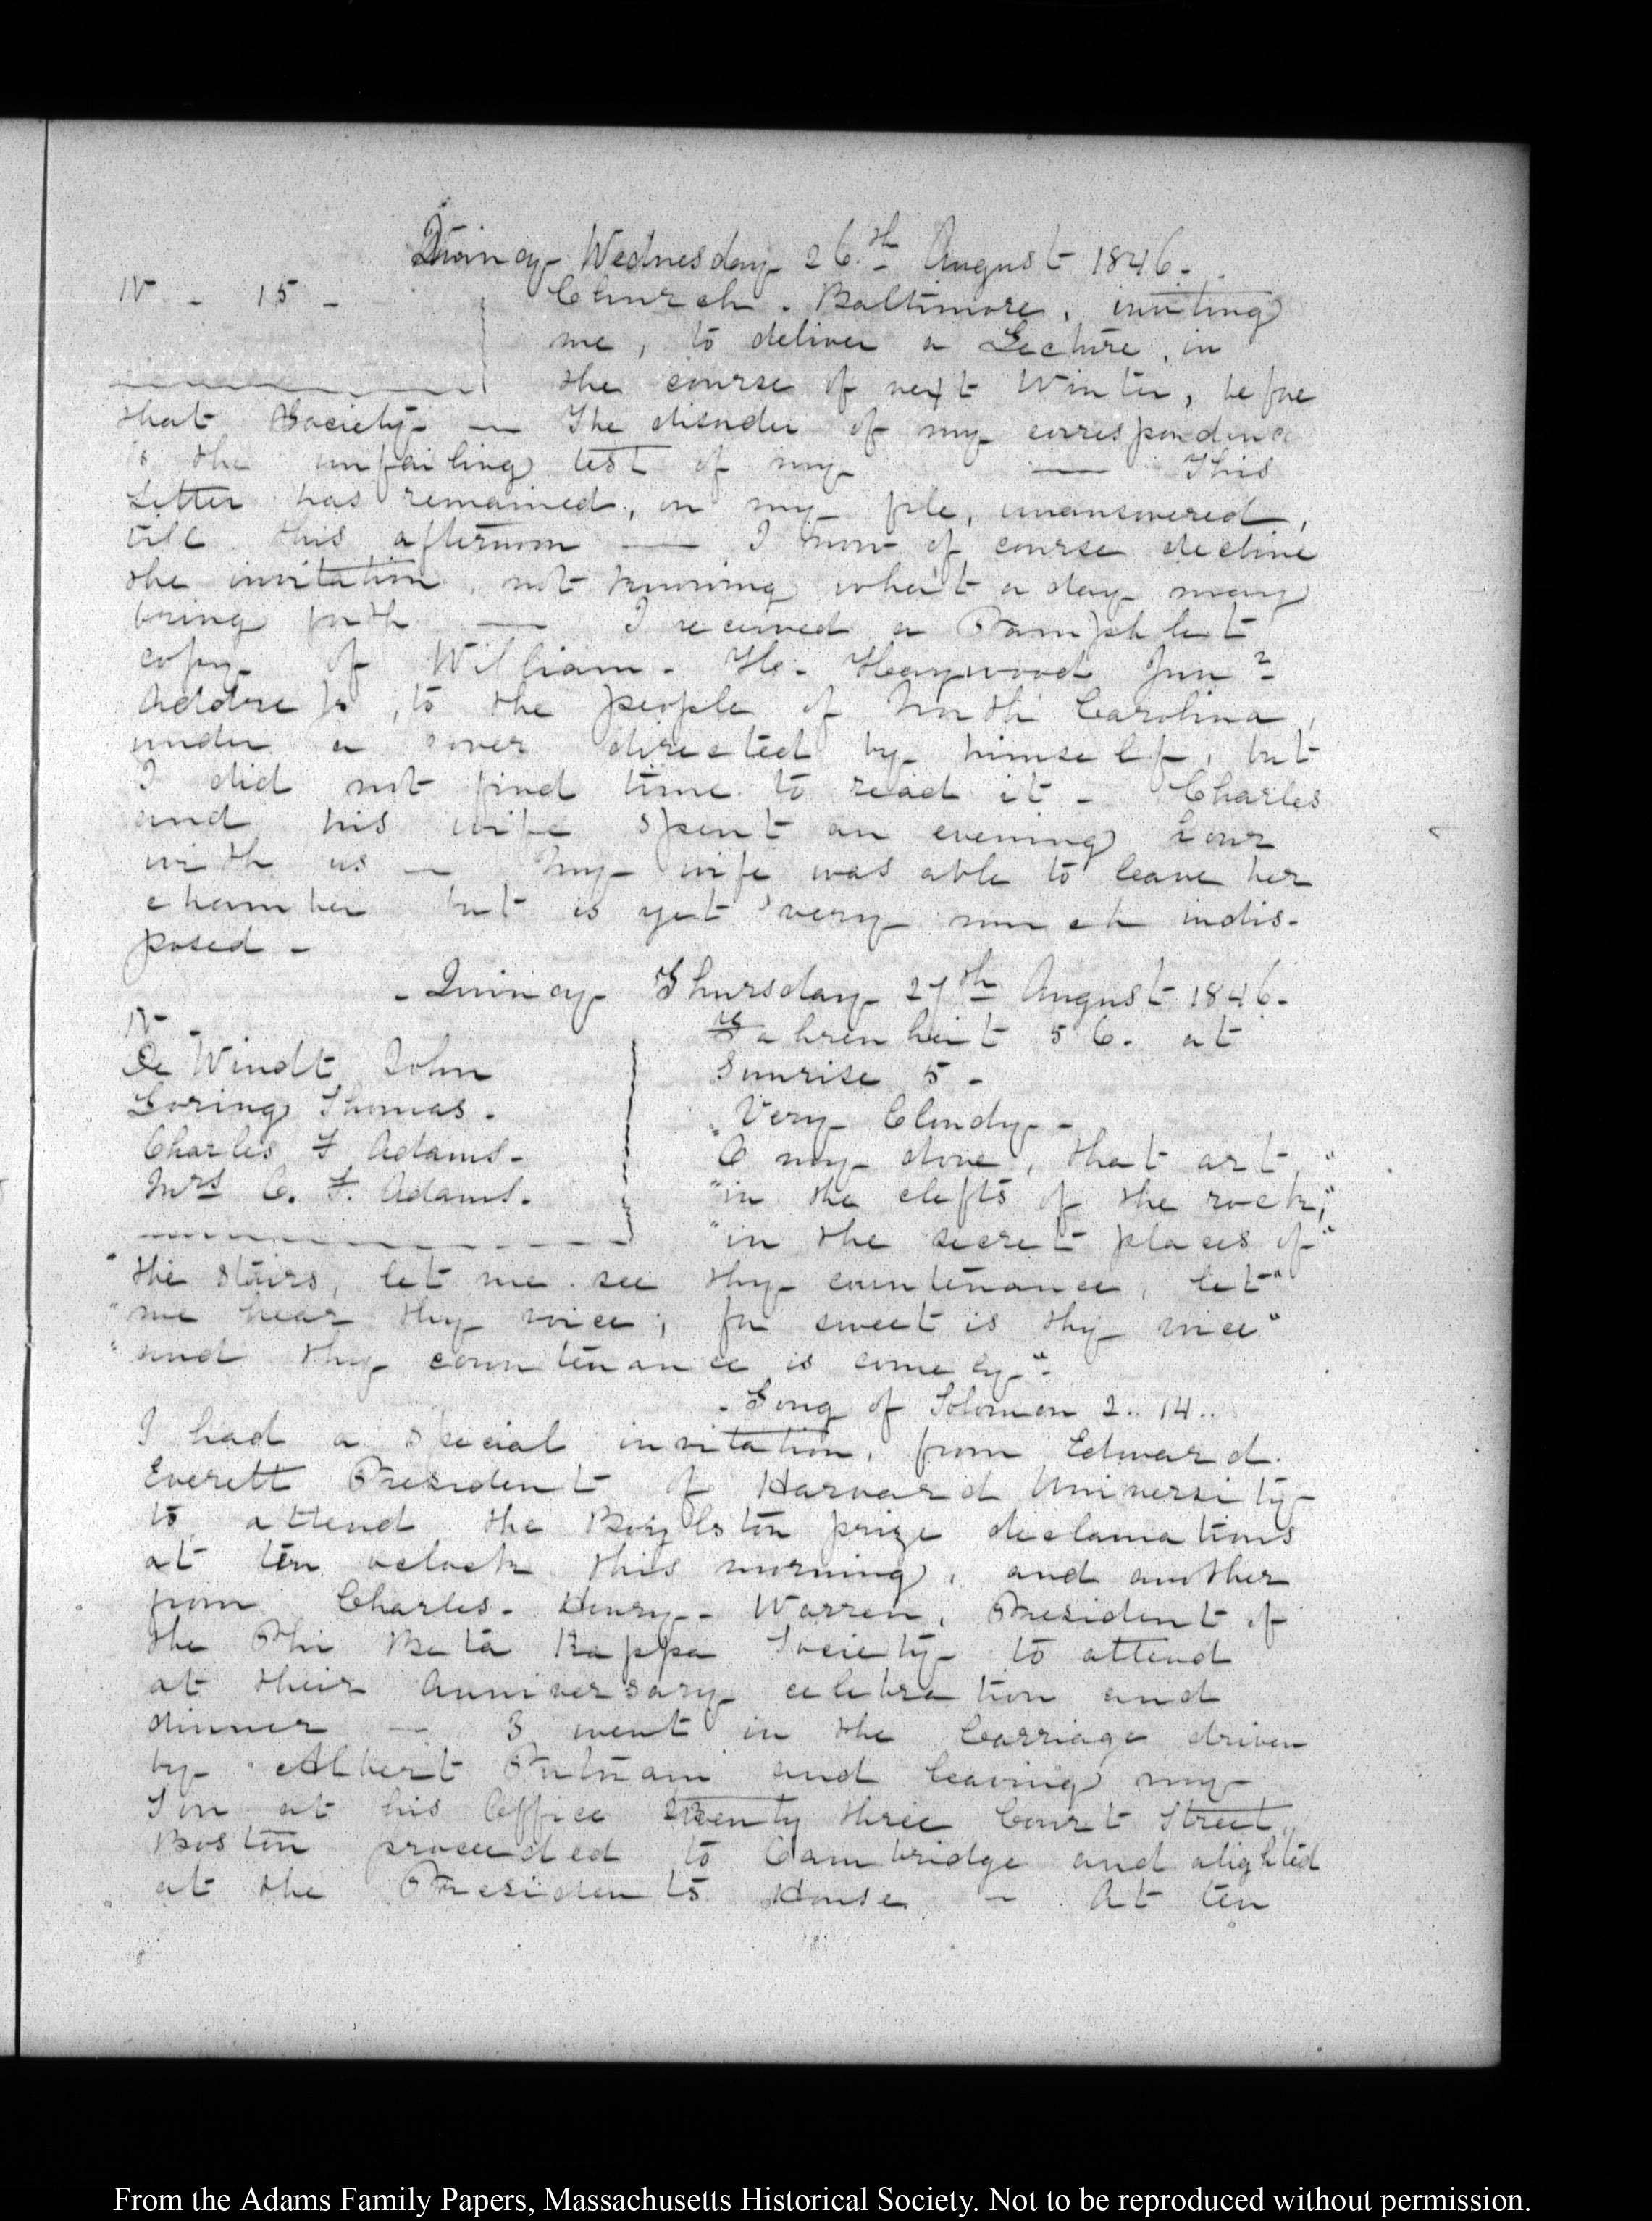 Quincy Wednesday 26.th August 1846.
IV - 15 -
Church. Baltimore, inviting
me, to deliver a Lecture, in
the course of next Winter, before
that Society — The disorder of my correspondence
is the unfailing test of my — This
Letter has remained, on my file, unanswered,
till this afternoon — I now of course decline
the invitation, not knowing what a day may
bring forth — I received a Pamphlet
copy of William. H. Haywood Junr
Address, to the people of North Carolina,
under a cover directed by himself, but
I did not find time to read it - Charles
and his wife spent an evening hour
with us — My wife was able to leave her
chamber but is yet very much indis-
posed -
- Quincy Thursday 27th August 1846.
IV -
De Windt John
Loring Thomas.
Charles F Adams.
Mrs C. F. Adams.
Fahrenheit 56. at
Sunrise 5 -
Very Cloudy -
O my dove, that art, "
"in the clefts of the rock,"
"in the secret places of"
"the stairs, let me see thy countenance, let"
"me hear thy voice; for sweet is thy voice"
"and thy countenance is comely".
. Song of Solomon 2.. 14..
I had a special invitation, from Edward.
Everett President of Harvard University
to attend the Boylston prize declamations
at ten oclock this morning, and another
from Charles. Henry. Warren, President of
the Phi Beta Kappa Society to attend
at their Anniversary celebration and
dinner — I went in the Carriage driven
by Albert Putnam and leaving my
Son at his Office twenty three Court Street,
Boston proceeded to Cambridge and alighted
at the Presidents House — At ten
From the Adams Family Papers, Massachusetts Historical Society. Not to be reproduced without permission.